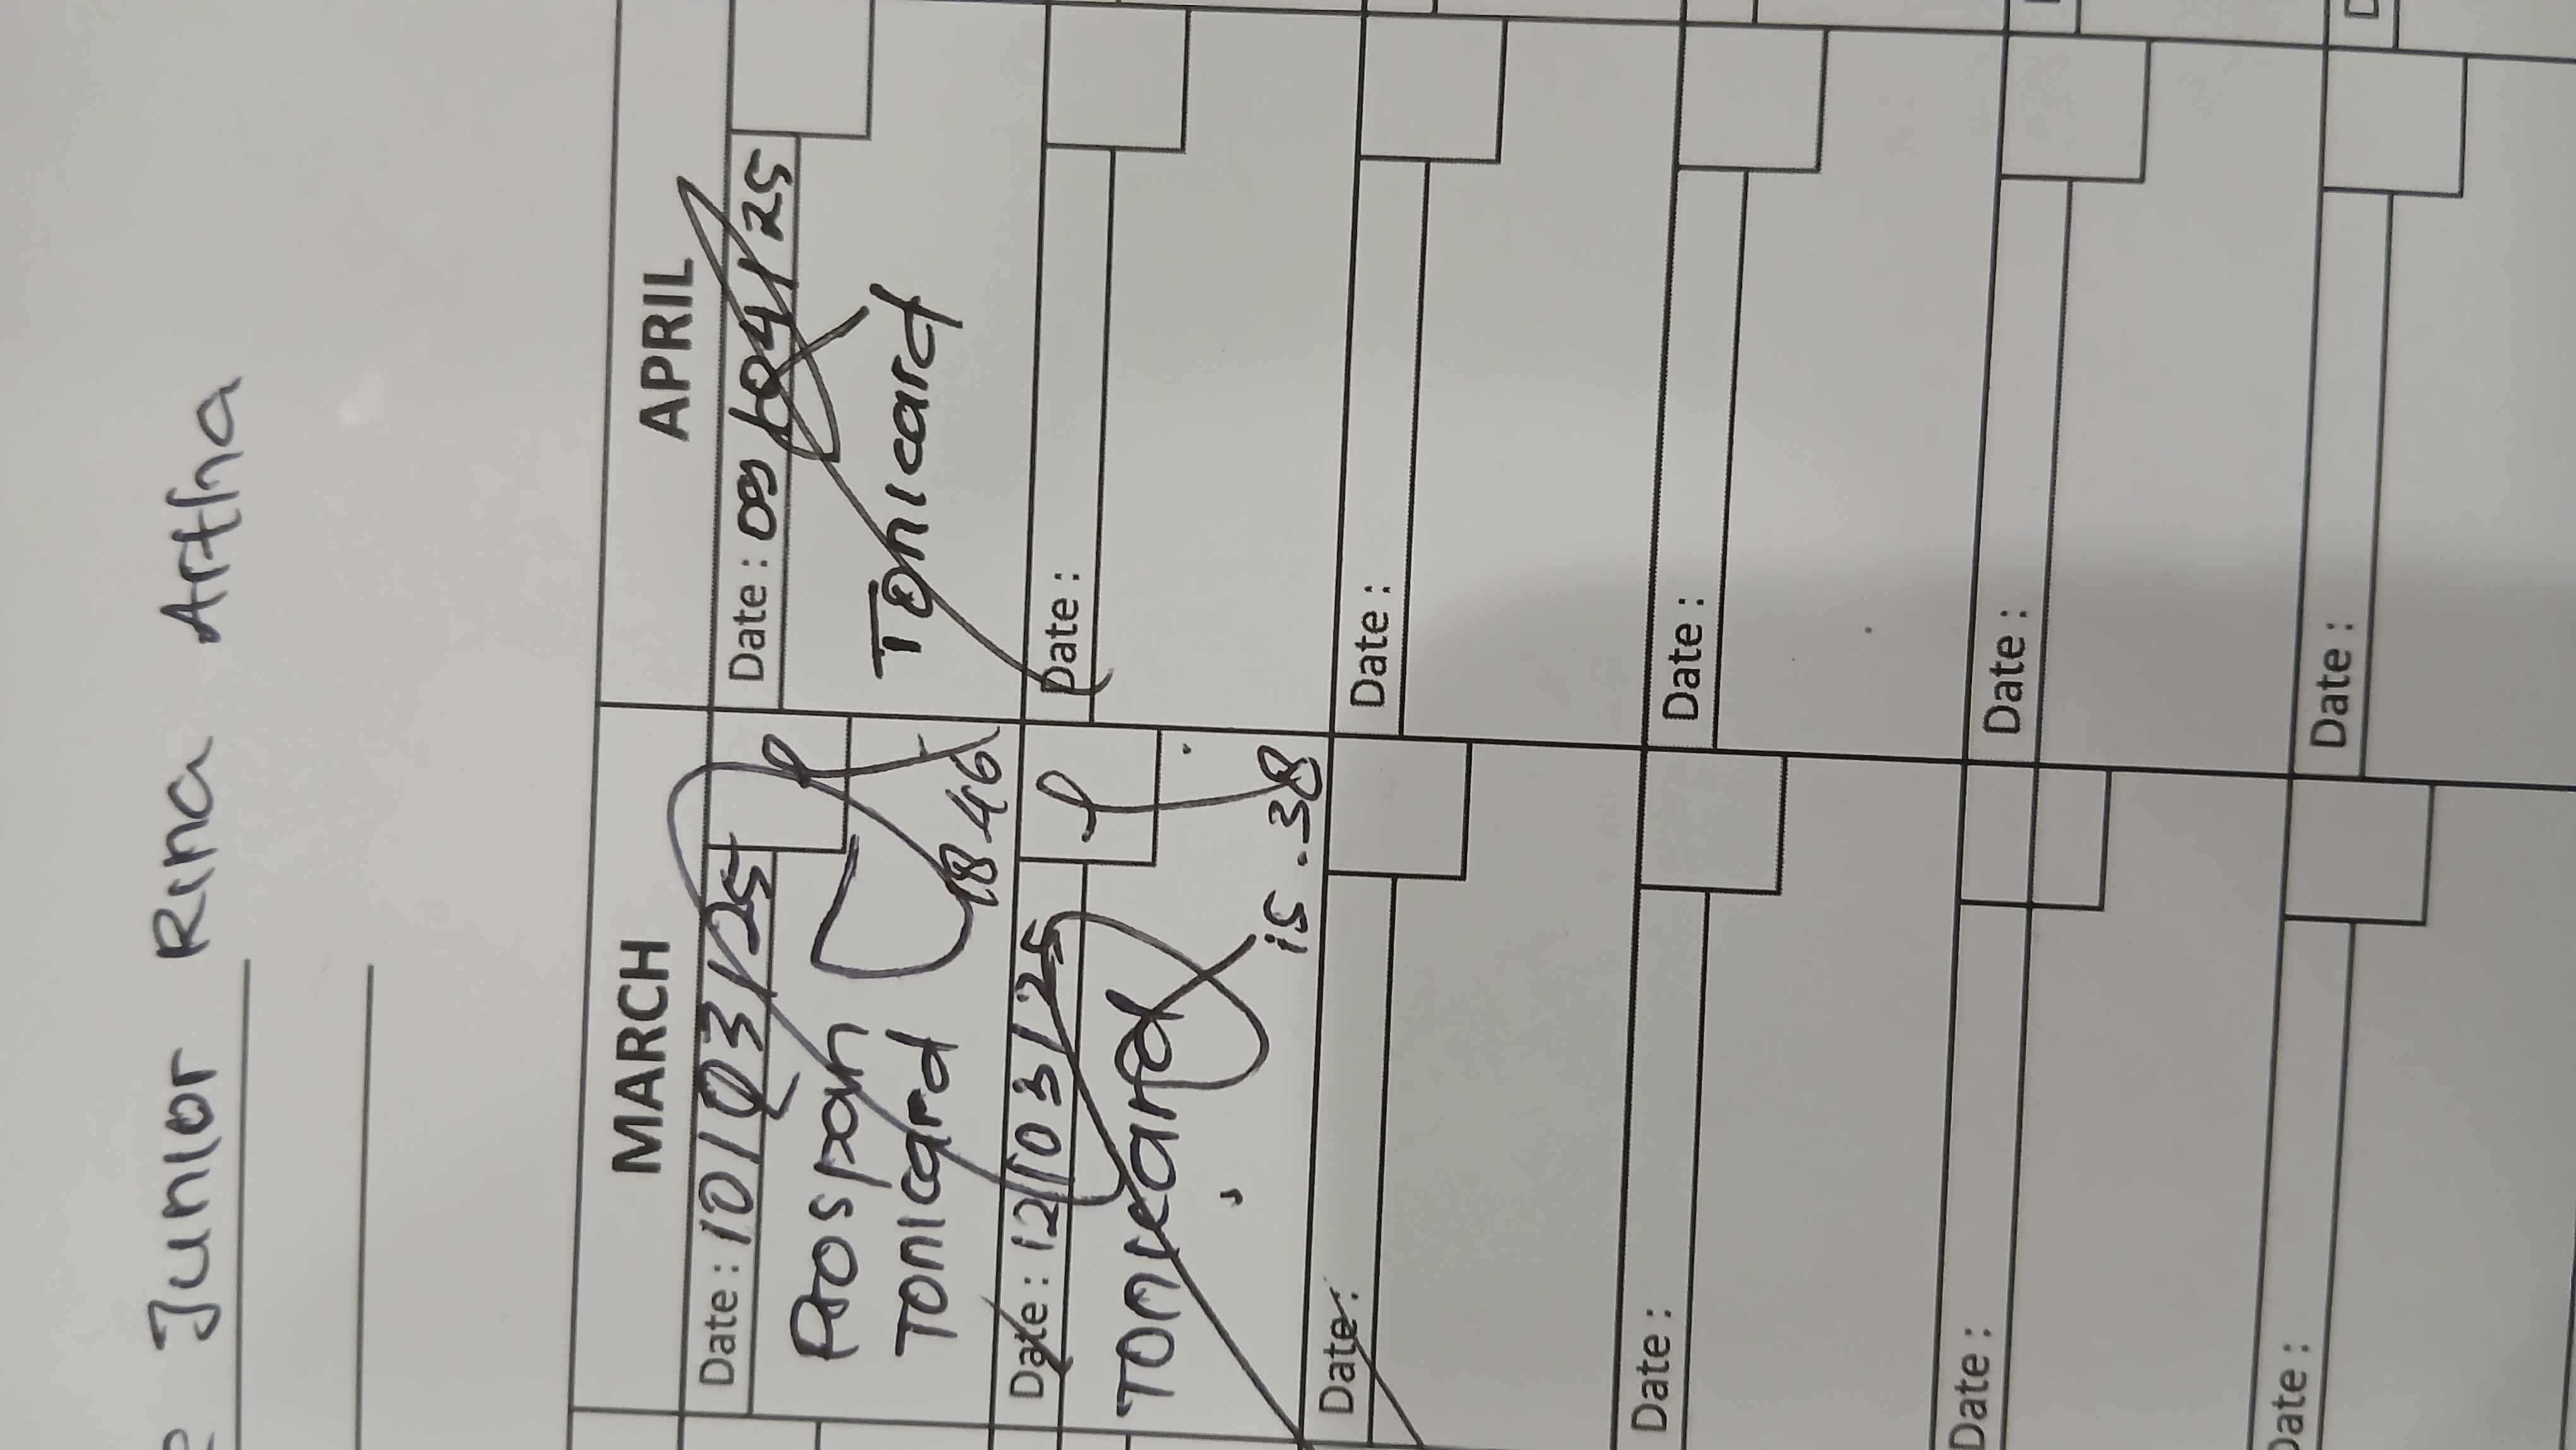 Junior Rina Artha
MARCH
APRIL
Date : 10/03/25
Prospan
Tonicard
18.46
Date : 12/03/25
Tonicard
15.38
Date :
Date :
Date :
Date :
Date : 09/04/25
Tonicard
Date :
Date :
Date :
Date :
Date :